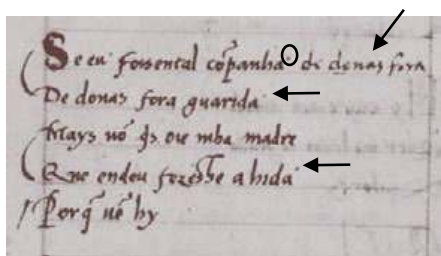 Se eu fossental cõpanha de donas fora
De donas fora guarida
Mays nõ q̃s oie mha madre
Que endeu fezesse a hida
Porq̃ nẽ hy